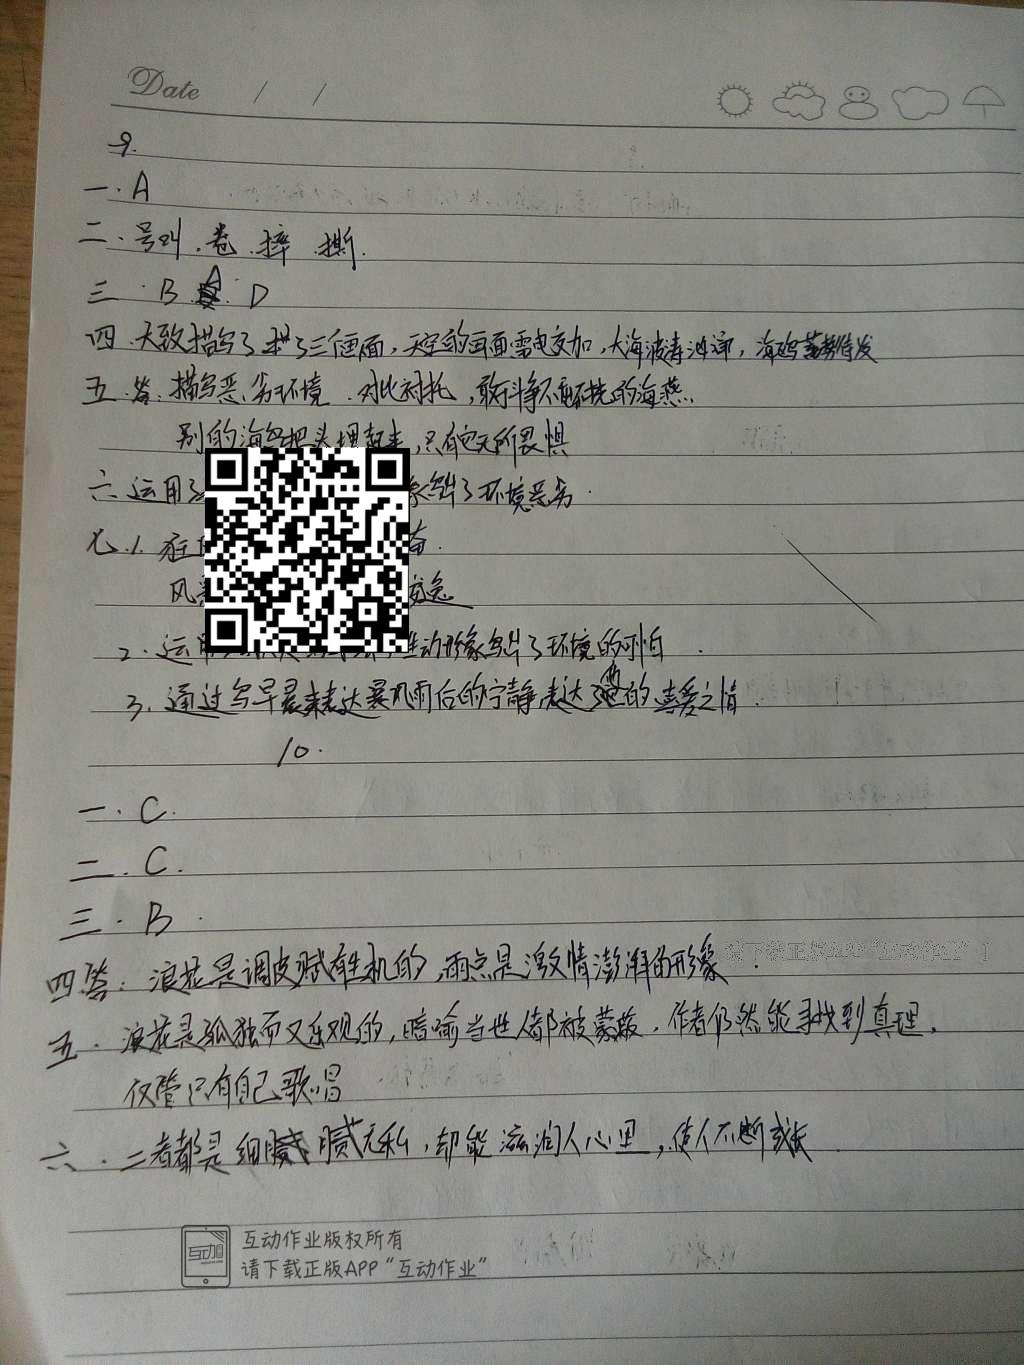 Date / /
9.
一. A
二. 号叫. 卷. 摔. 撕.
三. B A. D
四. 大致描写了三个画面, 天空的画面雷电交加, 大海波涛汹涌, 海鸥蓄势待发
五. 答. 描写恶劣环境. 对比衬托, 敢斗争不屈不挠的海燕.
别的海鸟把头埋起来, 只有它无所畏惧
六. 运用了 写出了环境恶劣.
七. 1. 狂
风
2. 运用 生动形象写出了环境的可怕.
3. 通过写早晨来表达暴风雨后的宁静, 表达了 的喜爱之情.
10.
一. C.
二. C.
三. B.
四. 答: 浪花是调皮赋有生机的, 雨点是激情澎湃的形象.
五. 浪花是孤独而又乐观的, 暗喻当世人都被蒙蔽. 作者仍然能寻找到真理.
仅管只有自己歌唱
六. 二者都是细腻无私, 却能滋润人心里, 使人不断成长
互动作业版权所有
请下载正版APP“互动作业”